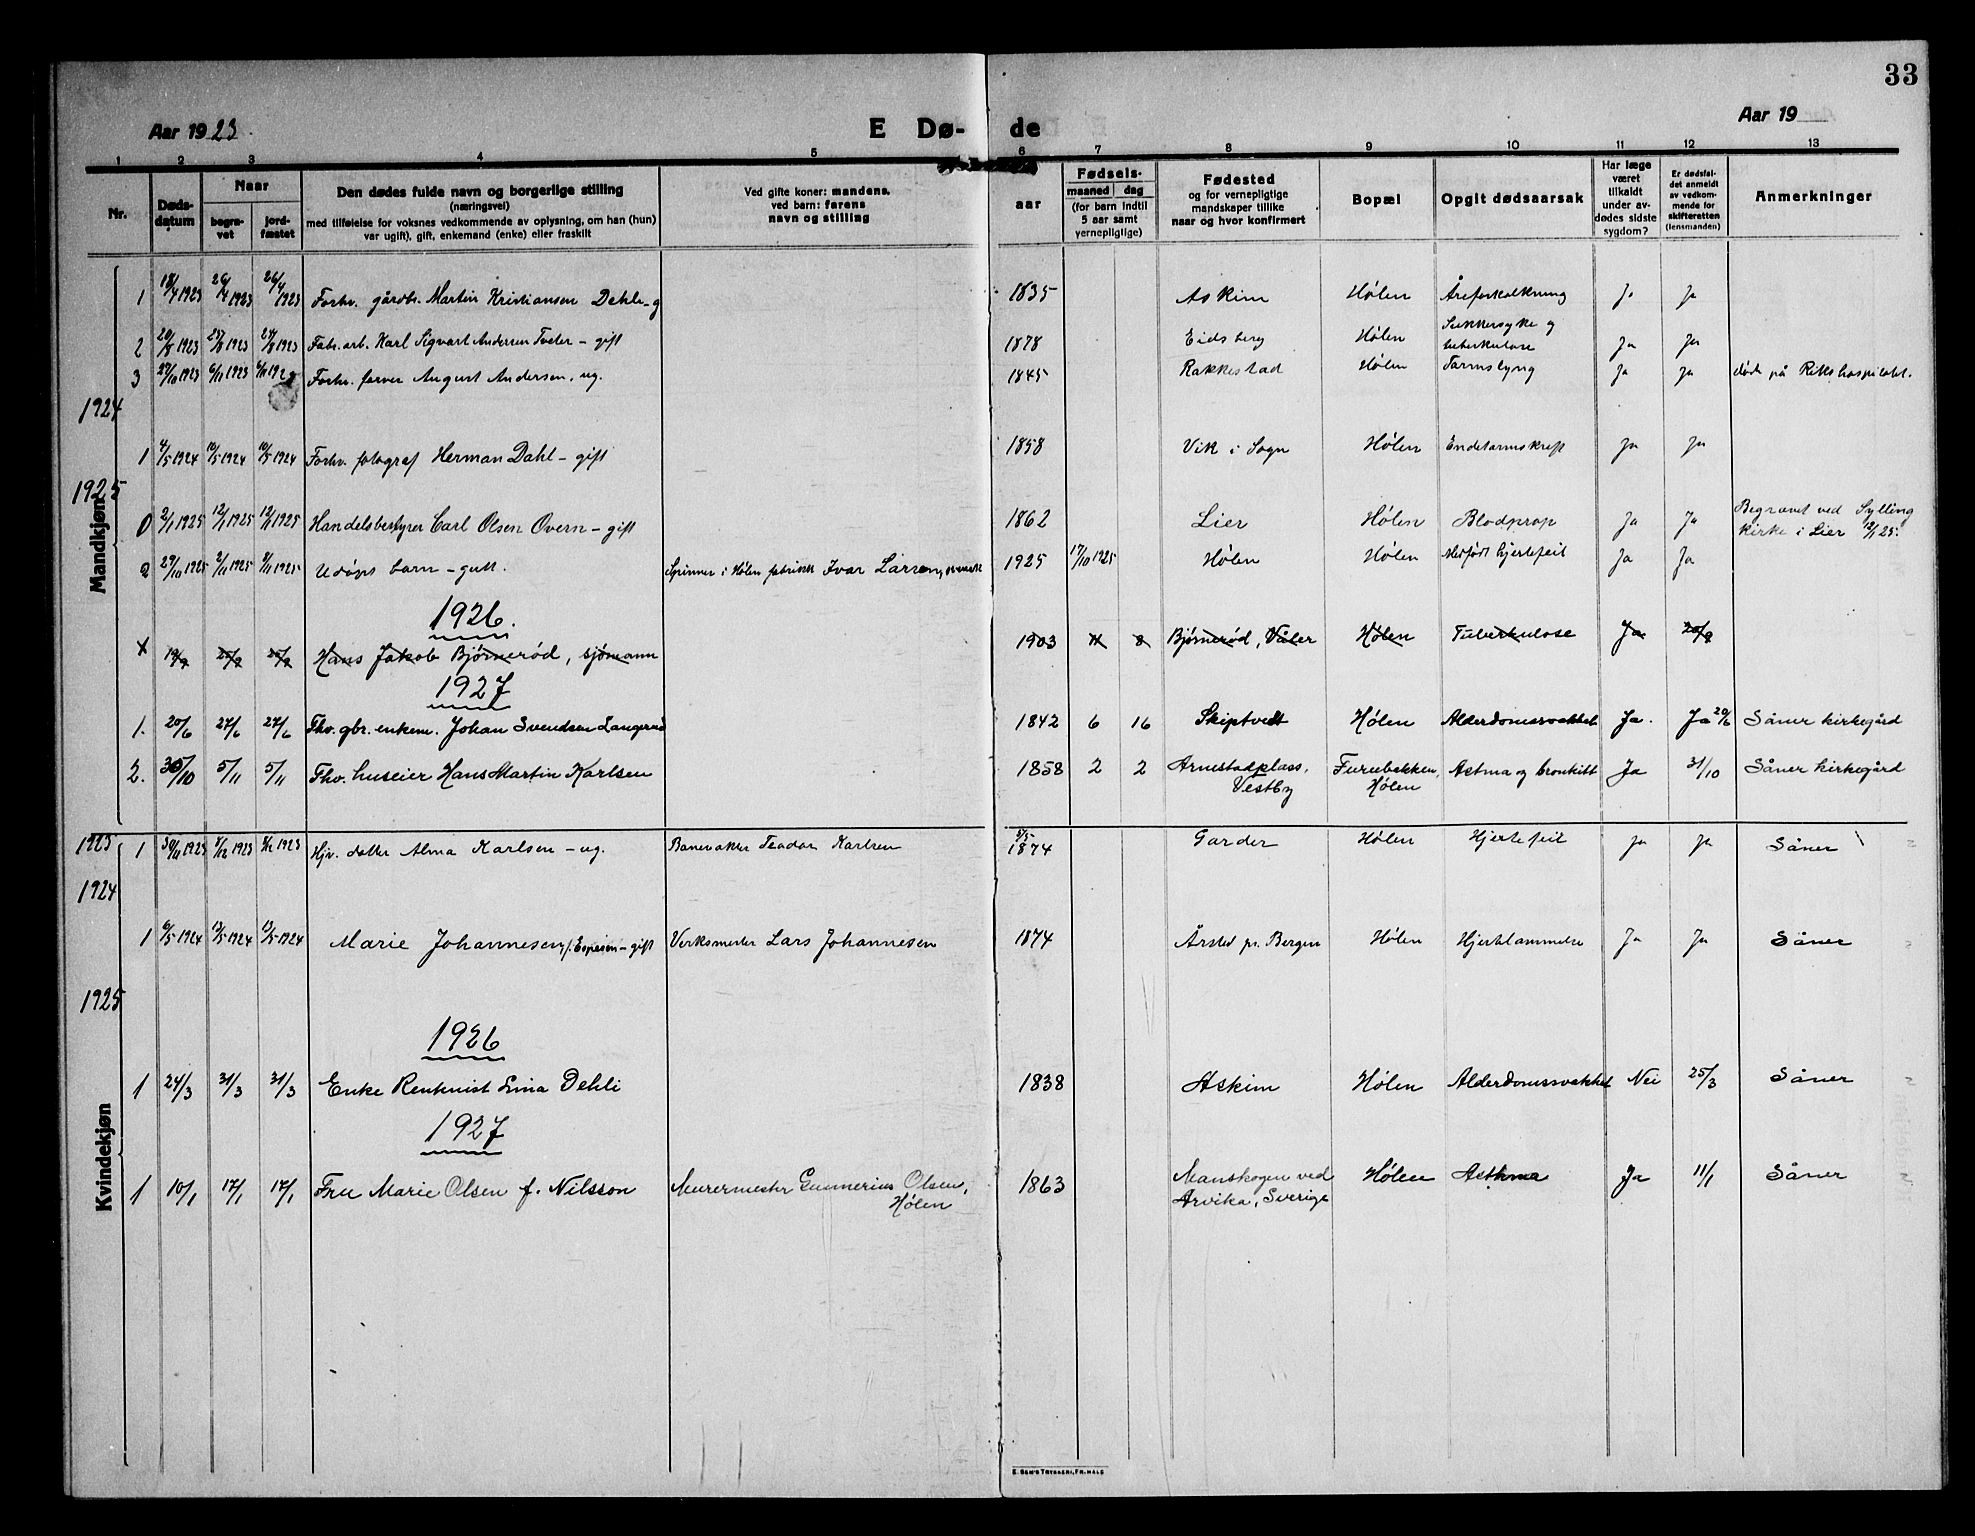 33
Aar 1923
E Dø-de
Aar 19
1 2 3 4 5 6 7 8 9 10 11 12 13
Nr.
Døds-
datum
Naar
begra-
vet
jord-
fæstet
Den dødes fulde navn og borgerlige stilling
(næringsvei)
med tilføielse for voksnes vedkommende av oplysning, om han (hun)
var ugift), gift, enkemand (enke) eller fraskilt
Ved gifte koner: mandens,
ved barn: farens
navn og stilling
aar
Fødsels-
maaned dag
(for barn indtil
5 aar samt
vernepligtige)
Fødested
og for vernepligtige
mandskaper tillike
naar og hvor konfirmert
Bopæl
Opgit dødsaarsak
Har læge
været
tilkaldt
under av-
dødes sidste
sygdom?
Er dødsfal-
det anmeldt
av vedkom-
mende for
skifteretten
(lensmanden)
Anmerkninger
Mandkjøn
1 18/4 1923 26/4 1923 26/4 1923 Forhv. gårdbr. Martin Kristiansen Dehli-g 1835 Askim Hølen Åreforkalkning Ja Ja
2 20/8 1923 27/8 1923 27/8 1923 Fabr.arb. Karl Sigvart Andersen Tveter - gift 1878 Eidsberg Hølen Sukkersyke og
tuberkulose Ja Ja
3 27/10 1923 6/11 1923 6/11 192 Forhv. farver August Andersen, ug. 1845 Rakkestad Hølen Tarmslyng Ja Ja døde på Rikshospitalet.
1924
1 4/5 1924 10/5 1924 10/5 1924 Forhv. fotograf Herman Dahl - gift 1858 Vik i Sogn Hølen Endetarmskreft Ja Ja
1925
0 2/1 1925 12/1 1925 12/1 1925 Handelsbestyrer Carl Olsen Overn - gift 1862 Lier Hølen Blodprop Ja Ja Begravet ved Sylling
kirke i Lier 12/1 25.
2 29/10 1925 2/11 1925 2/11 1925 Udøpt barn - gutt. Spinner i Hølen fabrikk Ivar Larsen, 1925 17/10 1925 Hølen Hølen Medfødt hjertefeil Ja Ja
1926.
x 19/9 25/9 25/9 Hans Jakob Bjørnerød, sjømann 1903 11 8 Bjørnerød, Våler Hølen Tuberkulose Ja 20/9
1927
1. 20/6 27/6 27/6 Fhv. gbr. enkem. Johan Svendsen Langerud 1842 6 16 Skiptvedt Hølen Alderdomssvakhet Ja. Ja 20/6 Såner kirkegård
2. 30/10 5/11 5/11 Fhv. huseier Hans Martin Karlsen 1858 2 2 Arnestadplass,
Vestby Furubakken,
Hølen Astma og bronkitt Ja 31/10 Såner kirkegård
Kvindekjøn
1923
1 30/11 1923 7/12 1923 7/12 1923 Hjv. datter Alma Karlsen - ug. Banevakter Teodor Karlsen 5/5-
1874 Garder Hølen Hjertefeil Ja Ja Såner
1924
1 6/5-1924 13/5-1924 13/5-1924 Marie Johannesen, f. Espesen - gift Verksmester Lars Johannesen 1874 Årstad pr. Bergen Hølen Hjertelammelse Ja Ja Såner
1925
1926
1 24/3 31/3 31/3 Enke Rentenist Lina Dehli 1838 Askim Hølen Alderdomssvakhet Nei 25/3 Såner
1927
1 10/1 17/1 17/1 Fru Marie Olsen f. Nilsson Murermester Gunnerius Olsen,
Hølen 1863 Manskogen ved
Arvika, Sverige Hølen Asthma Ja 11/1 Såner
E. SEM'S TRYKKERI, FR.HALD